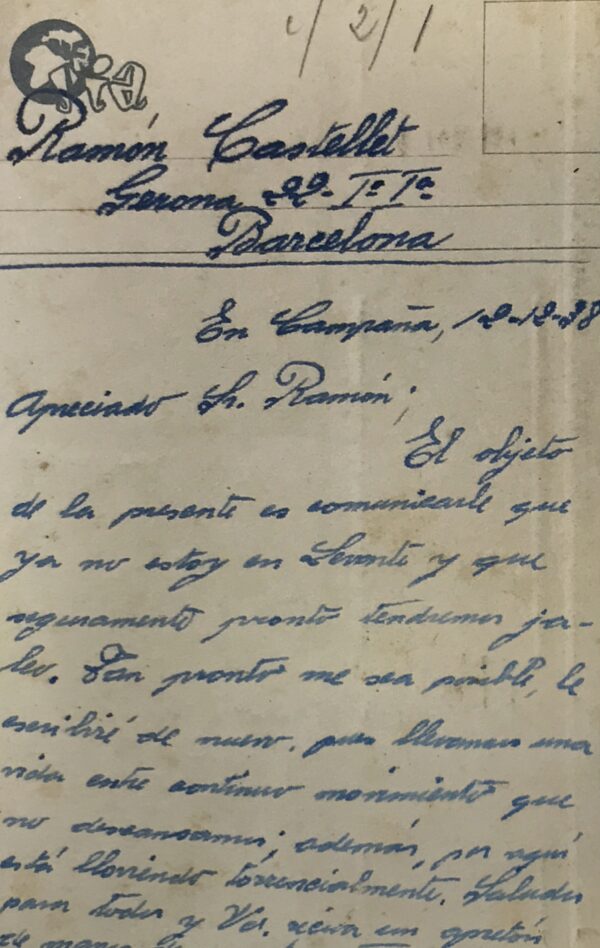 1/2/1
Ramón Castellet
Gerona 22- Iº Iª
Barcelona
En Campaña, 12-12-38
Apreciado Sr. Ramón;
El objeto
de la presente es comunicarle que
ya no estoy en Levante y que
seguramente pronto tendremos ja-
leo. Tan pronto me sea posible, le
escribiré de nuevo, pues llevamos una
vida entre continuo movimiento que
no descansamos; además, por aquí
está lloviendo torrencialmente. Saludos
para todos y Vd. reciva un apretón
de manos